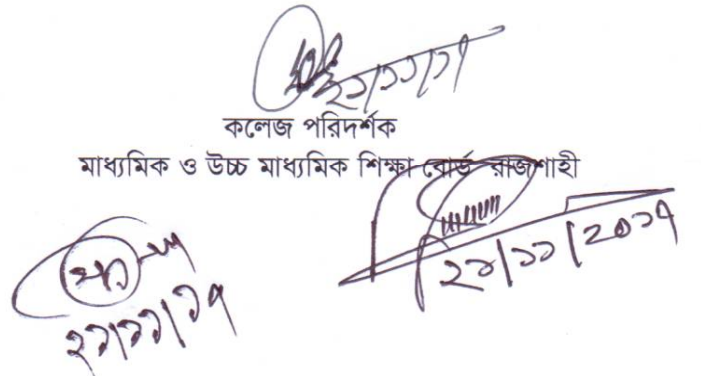 ২১/১১/১৭
কলেজ পরিদর্শক
মাধ্যমিক ও উচ্চ মাধ্যমিক শিক্ষা বোর্ড রাজশাহী
২১/১১/২০১৭
২১/১১/১৭